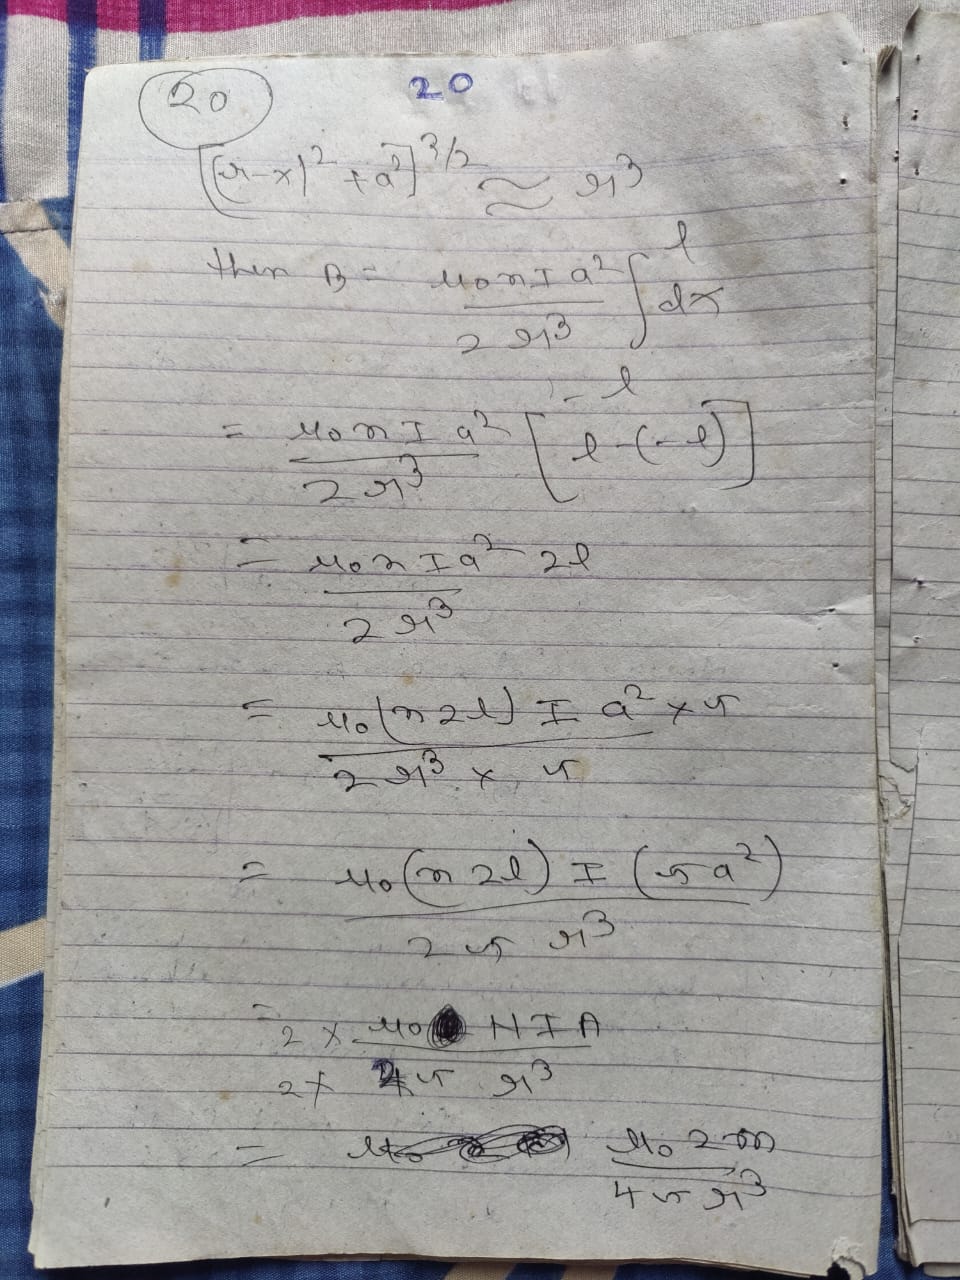 20 20
[(r-x)² + a²]^3/2 ≈ r³
then B = μ₀nIa²/2r³ ∫_{-l}^{l} dx
= μ₀nIa²/2r³ [l-(-l)]
= μ₀nIa²/2r³ 2l
= μ₀(n2l) I a² × π / 2r³ × π
= μ₀(n2l) I (πa²) / 2π r³
= 2 × μ₀ NIA / 2 × 2π r³
= μ₀ 2m / 4π r³